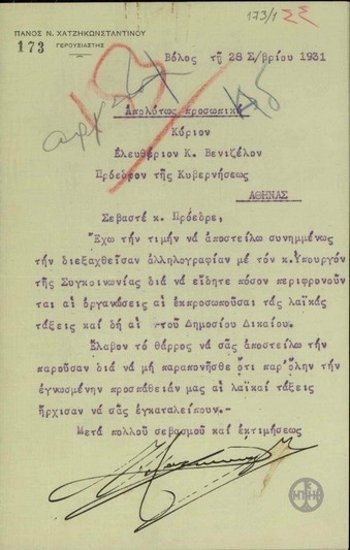 173/1 ΣΣ
ΠΑΝΟΣ Ν. ΧΑΤΖΗΚΩΝΣΤΑΝΤΙΝΟΥ
ΓΕΡΟΥΣΙΑΣΤΗΣ
173
Βόλος τῇ 28 Σ/βρίου 1931
Ἀπολύτως προσωπικ
Κύριον
Ἐλευθέριον Κ. Βενιζέλον
Πρόεδρον τῆς Κυβερνήσεως
ΑΘΗΝΑΣ
Σεβαστέ κ. Πρόεδρε,
Ἔχω τήν τιμήν νά ἀποστείλω συνημμένως
τήν διεξαχθεῖσαν ἀλληλογραφίαν μέ τόν κ.Υπουργόν
τῆς Συγκοινωνίας διά νά εἴδητε πόσον περιφρονοῦν
ται αἱ ὀργανώσεις αἱ ἐκπροσωποῦσαι τάς λαϊκάς
τάξεις καί δή αἱ -τοῦ Δημοσίου Δικαίου.
Ἔλαβον τό θάρρος νά σᾶς ἀποστείλω τήν
παροῦσαν διά νά μή παραπονῆσθε ὅτι παρ'ὅλην τήν
ἐγνωσμένην προσπάθειάν μας αἱ λαϊκαί τάξεις
ἤρχισαν νά σᾶς ἐγκαταλείπουν.-
Μετά πολλοῦ σεβασμοῦ καί ἐκτιμήσεως